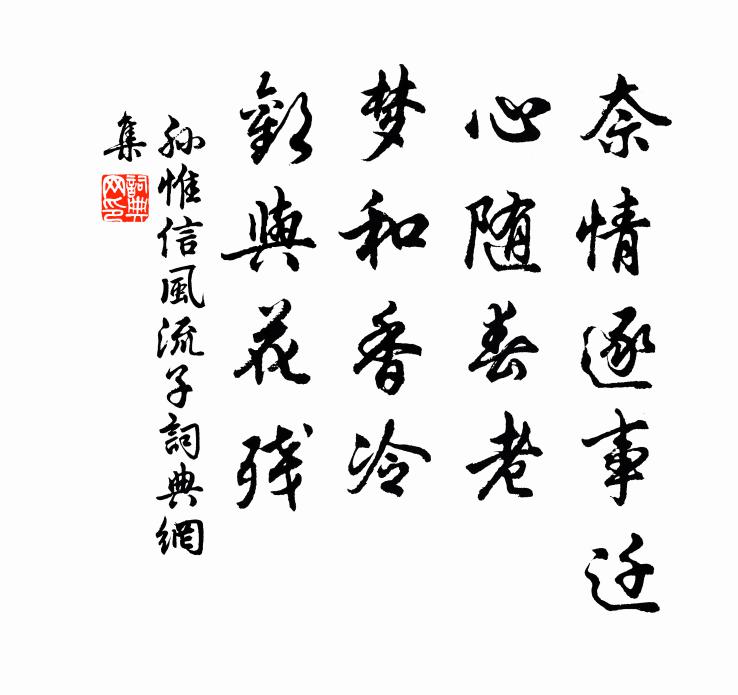 奈情逐事迁
心随春老
梦和香冷
歡與花残
孙惟信風流子詞典網
集
詞典网印